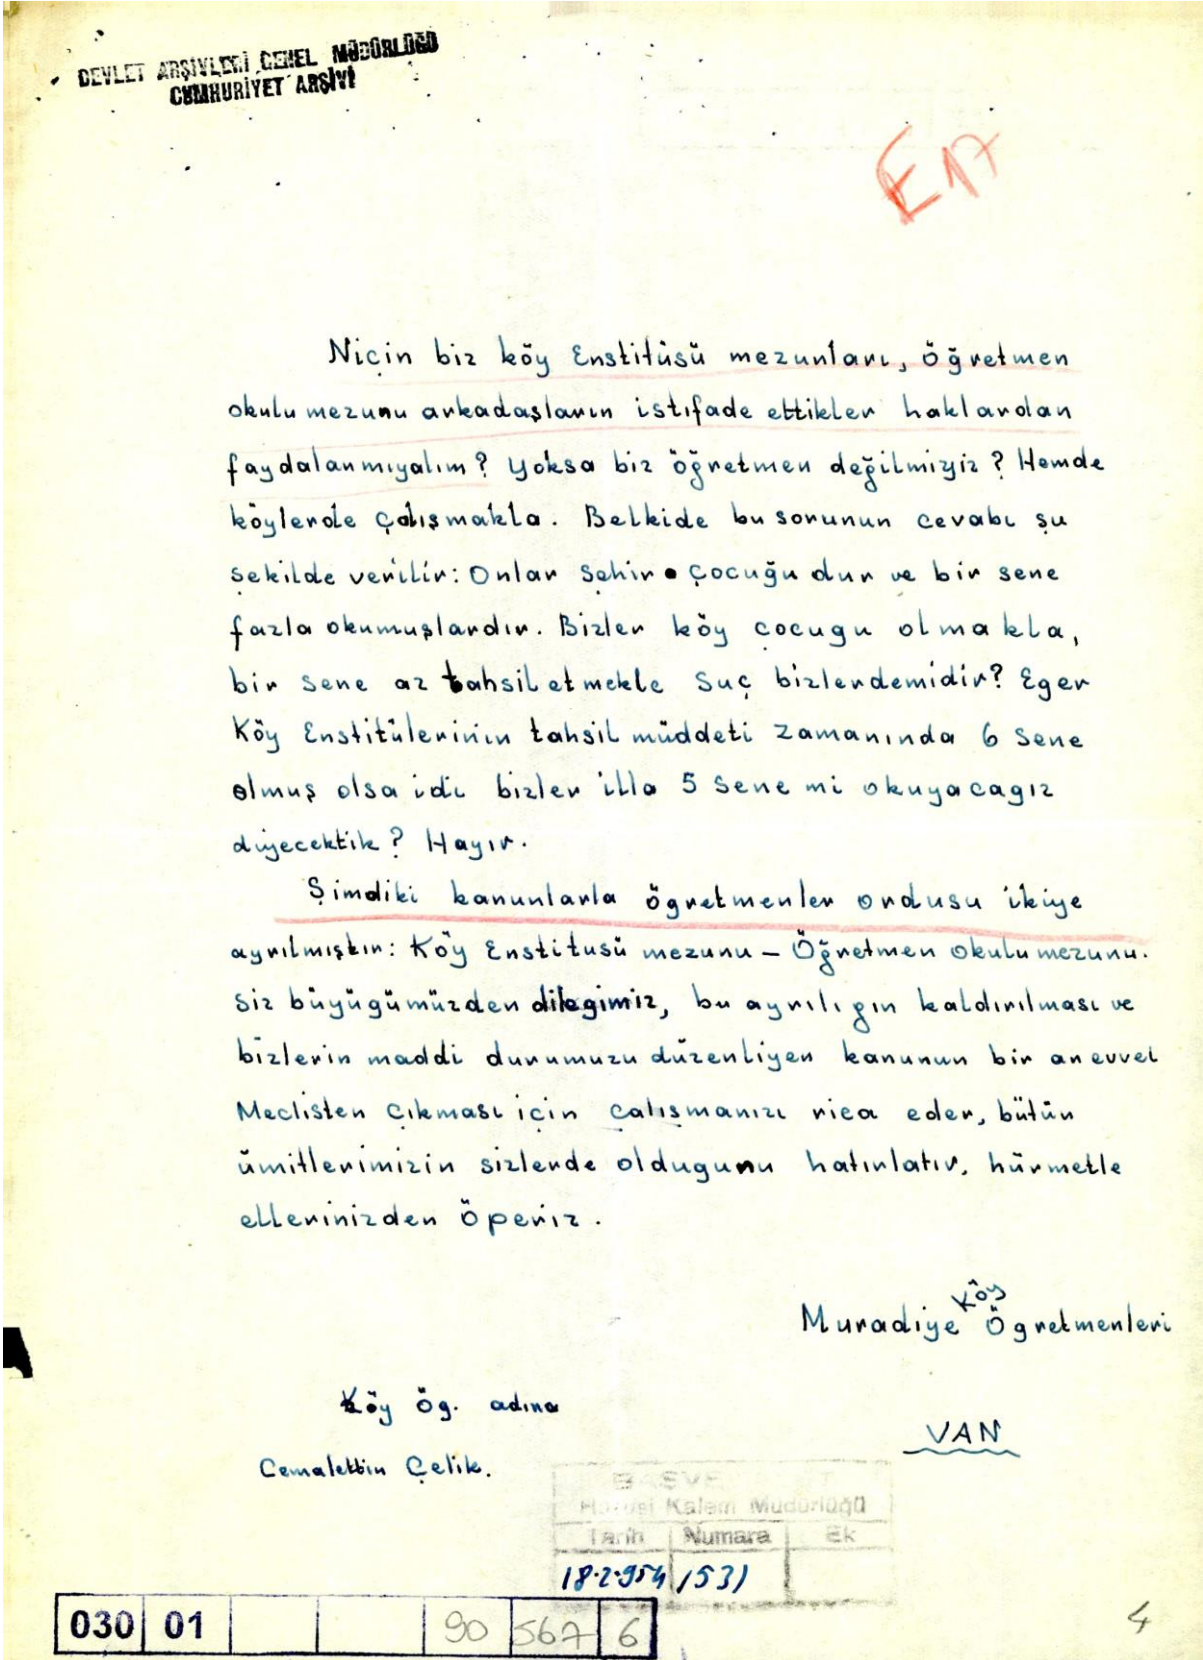 DEVLET ARŞİVLERİ GENEL MÜDÜRLÜĞÜ
CUMHURİYET ARŞİVİ
E 17
Niçin biz köy Enstitüsü mezunları, öğretmen
okulu mezunu arkadaşların istifade ettikler haklardan
faydalanmıyalım? Yoksa biz öğretmen değilmiyiz? Hemde
köylerde çalışmakla. Belkide bu sorunun cevabı şu
şekilde verilir: Onlar Şehir çocuğu dur ve bir sene
fazla okumuşlardır. Bizler köy çocugu olmakla,
bir sene az tahsil etmekle suç bizlerdemidir? Eger
Köy Enstitülerinin tahsil müddeti zamanında 6 sene
olmuş olsa idi bizler illa 5 sene mi okuyacagız
diyecektik? Hayır.
Şimdiki kanunlarla ögretmenler ordusu ikiye
ayrılmıştır: Köy Enstitusü mezunu – Öğretmen okulu mezunu.
Siz büyügümüzden dilegimiz, bu ayrılıgın kaldırılması ve
bizlerin maddi durumuzu düzenliyen kanunun bir an evvel
Meclisten çıkması için çalışmanızı rica eder, bütün
ümitlerimizin sizlerde oldugunu hatırlatır, hürmetle
ellerinizden öperiz.
Muradiye Köy Ögretmenleri
Köy Ög. adına
VAN
Cemalettin Çelik.
Hususi Kalem Müdürlüğü
Tarih Numara Ek
18.2.954 1531
030 01 90 567 6
4